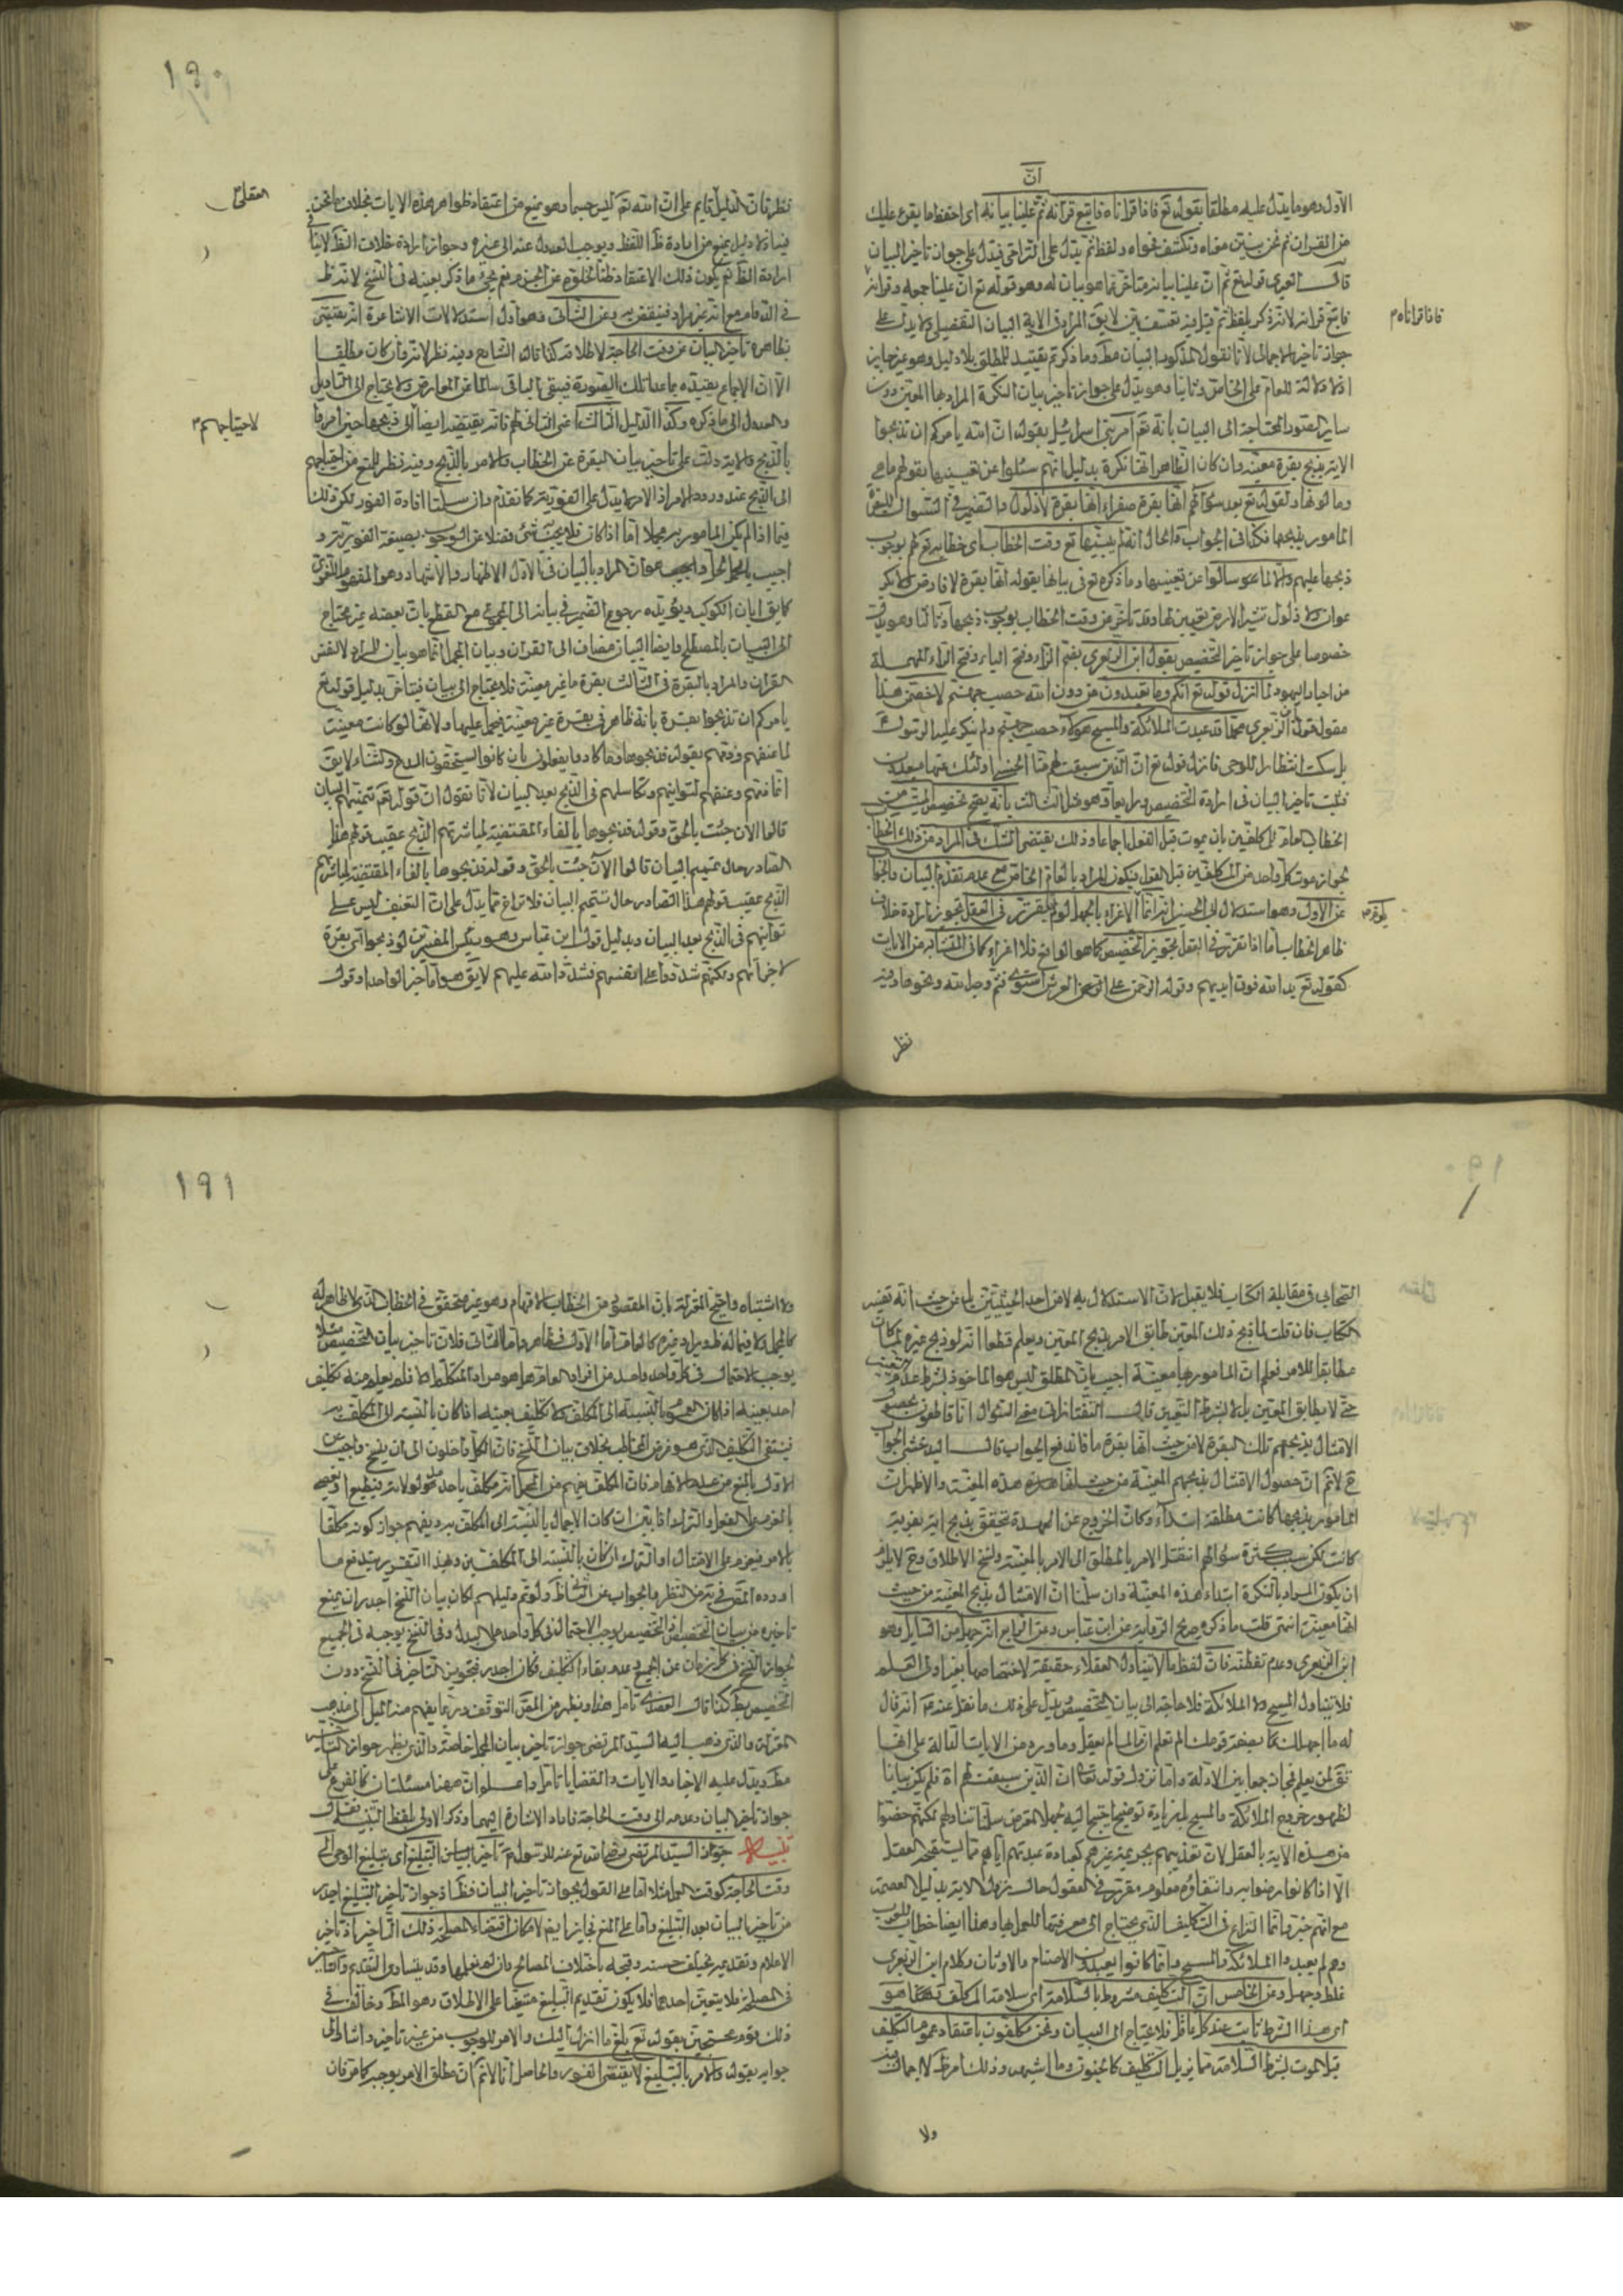 انّ
الاول وهو ما يدل عليه مطلقا بقوله تع فاذا قراناه فاتبع قرآنه ثمّ علينا بيانه اى احفظ ما يقرء عليك
من القران ثم نحن نبين معناه ونكشف فحواه ولفظ ثم يدل على التراخى فيدل على جواز تاخير البيان
قوله تع ثم ان علينا بيانه هو بيان له وهو قوله تع ان علينا جمعه وقرانه
فاذا قراناه م
فاتبع قرانه لانه ذكر بلفظ ثم لا يق المراد فى الاية البيان التفصيلى ولا يدل على
جواز تاخير الاجمالى لانا نقول المذكور البيان مط وما ذكرتم تقييد للمطلق بلا دليل وهو غير جايز
اذ لا دلالة للعام على الخاص وثانيا وهو يدل على جواز تاخير بيان النكرة المراد بها المعين دون
ساير المحتاجة الى البيان بانه تع امر بنى اسرائيل بقوله ان الله يامركم ان تذبحوا
الاية بذبح بقرة معينة وان كان الظاهر انها نكرة بدليل انهم سئلوا عن تعيينها بقولهم ما هى
وما لونها ولقوله تع بعد سؤالهم انها بقرة صفراء انها بقرة لا ذلول والضمير فى السؤال للبقرة
المامور بذبحها فكذا فى الجواب والحال انه لم يبينها تع وقت الخطاب اى خطابه تع لهم بوجوب
ذبحها عليهم والا لما سالوا عن تعيينها وما ذكره تع فى بيانها بقوله انها بقرة لا فارض ولا بكر
عوان ولا ذلول تثير الارض تعيين لها وقد تاخر عن وقت الخطاب بوجوب ذبحها وثالثا وهو يدل
خصوصا على جواز تاخير التخصيص بقول ابن الزبعرى بفتح الزاء وفتح الباء وفتح الراء المهملة
من احبار اليهود لما انزل قوله تع انكم وما تعبدون من دون الله حصب جهنم لاخصمن محمدا
قد عبدت الملائكة والمسيح فهؤلاء حصب جهنم ولم ينكر عليه الرسول ص
بل سكت انتظارا للوحى فانزل قوله تع ان الذين سبقت لهم منا الحسنى اولئك عنها مبعدون
فثبت تاخير البيان فى ارادة التخصيص ورابعا وهو مثل الثالث بانه يصح تخصيص الميت من
الخطاب العام للمكلفين بان يموت قبل الفعل اجماعا وذلك يقتضى الشك فى المراد من ذلك الخطاب
لجواز موت كل واحد من المكلفين قبل الفعل فيكون المراد بالعام الخاص مع عدم تقدم البيان والجواب
عن الاول وهو استدلال ابى الحسين انه انما الاغراء بالجهل لو لم يتقرر فى العقل تجويز ارادة خلاف
ظاهر الخطاب اما اذا تقرر فى العقل تجويز التخصيص كما هو الواقع فلا اغراء كما فى المتشابه من الايات
كقوله تع يد الله فوق ايديهم وقوله الرحمن على العرش استوى فثم وجه الله ونحوها وفيه
نظر
١٩٠
نظر فان الدليل قايم على ان الله تع ليس جسما وهو يمنع من اعتقاد ظواهر هذه الايات بخلاف ما نحن
العقلى
فيه اذ لا دليل يمنع من ارادة اللفظ ويوجب العدول عنه الى غيره وجواز ارادة خلاف الظ لا ينافى
ارادة الظ ثم يكون ذلك الاعتقاد ظنا لخلوه عن الجزم نعم يجئ ما ذكر بعينه فى النسخ لانه ظ
فى الدوام مع انه غير مراد فينتقض به وعن الثانى وهو اول استدلالات الاشاعرة انه يقتضى
بظاهره تاخير البيان عن وقت الحاجة لاطلاقه كذا قال الشارح وفيه نظر لانه وان كان مطلقا
الا ان الاجماع يقيده بما عدا تلك الصورة فيبقى الباقى سالما عن المعارض ولا يحتاج الى التاويل
والعدول الى ما ذكره وكذا الدليل الثالث اعنى الثانى لهم فانه يقتضيه ايضا الى ذبحها حين امروا
لاحتياجهم م
بالذبح والاية دلت على تاخير بيان البقرة عن الخطاب والامر بالذبح وفيه نظر للمنع من احتياجهم
الى الذبح عند ورود الامر اذ الامر لا يدل على الفورية كما تقدم وان سلمنا افادة الفور لكن ذلك
فيما اذا لم يكن المامور به مجملا اما اذا كان فلا يجب شئ فضلا عن الوجوب بصيغة الفورية و
اجيب بان المراد بالبيان فى الاول الاظهار والاشتهار وهو المفهوم اللغوى
كما يق بان الكوكب ويؤيده رجوع الضمير فى بيانه الى المجموع مع القطع بان بعضه غير محتاج
الى البيان بالمصطلح وايضا البيان مضاف الى القران وبيان المجمل انما هو بيان للمراد لا لنفس
القران والمراد بالبقرة فى الثالث بقرة ما غير معينة فلا يحتاج الى بيان فيتاخر بدليل قوله تع
يامركم ان تذبحوا بقرة بانه ظاهر فى بقرة غير معينة فيحمل عليها ولانها لو كانت معينة
لما عنفهم وذمهم بقوله فذبحوها وما كادوا يفعلون بل كانوا يستحقون المدح والثناء لا يق
انما ذمهم وعنفهم لتوانيهم وتكاسلهم فى الذبح بعد البيان لانا نقول ان قوله تع تتميم البيان
قالوا الان جئت بالحق وقوله فذبحوها بالفاء المقتضية لمباشرتهم الذبح عقيب قولهم هذا
الصادر حال تتميم البيان قالوا الان جئت بالحق وقوله فذبحوها بالفاء المقتضية لمباشرتهم
الذبح عقيب قولهم هذا الصادر حال تتميم البيان فلا تراخ مما يدل على ان التعنيف ليس على
توانيهم فى الذبح بعد البيان وبدليل قول ابن عباس وهو رئيس المفسرين لو ذبحوا اى بقرة
لاجزأتهم ولكنهم شددوا على انفسهم فشدد الله عليهم لا يق هو اما خبر الواحد او قول
الصحابى فى مقابلة الكتاب فلا يقبل لان الاستدلال به لا من احد الحيثيتين بل من حيث انه تفسير
الكتاب فان قلت لما ذبح ذلك المعين طابق الامر بذبح المعين ويعلم قطعا انه لو ذبح غيره لما كان
مطابقا للامر فعلم ان المامور بها معينة اجيب بان المطلق ليس هو الماخوذ بشرط عدم التعيين
حتى لا يطابق المعين بل لا بشرط التعيين قال التفتازانى معنى السؤال انا قاطعون بحصول
الامتثال بذبحهم تلك البقرة لا من حيث انها بقرة ما فاندفع الجواب
ح لا نم ان حصول الامتثال بذبحهم المعينة من حيث هذه المعينة والاظهر ان
المامور بذبحها كانت مطلقة ابتداء وكان الخروج عن العهدة يتحقق بذبح اية بقرة
كانت لكن بسبب كثرة سؤالهم انتقل الامر بالمطلق الى الامر بالمعينة ونسخ الاطلاق وح لا يلزم
ان يكون المراد بالنكرة ابتداء هذه المعينة وان سلمنا ان الامتثال بذبح المعينة من حيث
انها معينة انتهى قلت ما ذكره صريح الرواية عن ابن عباس وعن الرابع انه جهل من السايل وهو
ابن الزبعرى وعدم تفطنه فان لفظ ما لا يتناول العقلاء حقيقة لاختصاصها بغير اولى العلم
فلا يتناول المسيح ولا الملائكة فلا حاجة الى بيان التخصيص يدل على ذلك ما نقل عنه ع انه قال
له ما اجهلك بلغة قومك الم تعلم ان ما لما لم يعقل وما ورد من الايات الدالة على انها
لمن يعلم فمجاز جمعا بين الادلة واما نزول قوله تعالى ان الذين سبقت لهم اه فلم يكن بيانا
لظهور خروج الملائكة والمسيح بل زيادة توضيح احتيج اليه لجهل المعترض سلمنا تناولهم لكنهم خصوا
من هذه الاية بالعقل لان تعذيبهم بجريمة غيرهم كعبادة عبدتهم اياهم مما يستقبحه العقل
الا اذا كانوا رضوا به وانتفاؤه معلوم مقرر فى العقول حال نزول الاية بدليل العصمة
مع انهم خبر وانما النزاع فى التكاليف الذى يحتاج الى معرفتها للعمل بها وهذا ايضا خطاب للعرب
وهم لم يعبدوا الملائكة والمسيح وانما كانوا يعبدون الاصنام والاوثان وكلام ابن الزبعرى
غلط وجهل وعن الخامس ان التكليف مشروط بالسلامة اى سلامة المكلف
اى هذا الشرط ثابت عند كل عاقل فلا يحتاج الى البيان ونحن مكلفون باعتقاد عموم التكليف
قبل الموت بشرط السلامة مما يزيل التكليف كالجنون وما اشبهه وذلك امر ظ لا اجمال فيه
ولا
١٩١
ولا اشتباه واحتج المعتزلة بان المقصود من الخطاب الافهام وهو غير متحقق فى الخطاب الذى لا ظاهر له
كالمجمل ولا فيما له ظ ويراد غيره كالعام اما الاول فظاهر واما الثانى فلان تاخير بيان التخصيص مثلا
يوجب الاحتمال فى كل واحد واحد من افراد العام هل هو مراد المتكلم ام لا فلم يعلم منه تكليف
احد بعينه اذا كان العموم بالنسبة الى المكلف ولا تكليف بعينه اذا كان بالنسبة الى المكلف به
فينتفى التكليف الذى هو غرض المخاطب بخلاف بيان النسخ فان الكل داخلون الى ان ينسخ واجيب عن
الاول بالمنع من عدم الافهام فان المكلف يفهم من المجمل انه مكلف باحد مدلولاته فيطيع او يعصى
بالعزم على الفعل او الترك اذا بين ان كان الاجمال بالنسبة الى المكلف به ويفهم جواز كونه مكلفا
بالامر فيعزم على الامتثال او الترك ان كان بالنسبة الى المكلفين وهذا التقرير يندفع ما
اورده المص فى يه من النظر والجواب عن الثانى ولو تم دليلهم لكان بيان النسخ اجدر ان يمنع
تاخيره من بيان التخصيص اذ التخصيص يوجب الاحتمال فى كل واحد على البدل وفى النسخ يوجبه فى الجميع
لجواز النسخ فى كل زمان عن الجميع وعدم بقاء التكليف فكان اجدر فتجويز التاخير فى النسخ دون
التخصيص بط كذا قال العضدى تامل هذا ويظهر من المص التوقف وربما يفهم منه الميل الى مذهب
المعتزلة والذى ذهب اليه السيد المرتضى جواز تاخير بيان المجمل خاصة والذى يظهر جواز التاخير
مط ويدل عليه الاخبار والايات والقضايا تامل واعلم ان ههنا مسئلتان كالفرع على
جواز تاخير البيان وعدمه الى وقت الحاجة فاراد الاشارة اليهما وذكر الاولى بلفظ التنبيه فقال
تنبيه جوز السيد المرتضى رضى الله تع عنه للرسول ص تاخير التبليغ اى تبليغ الوحى الى
وقت الحاجة كوقت العمل مثلا اما على القول بجواز تاخير البيان فظ اذ جواز تاخير التبليغ اجدر
من تاخير البيان بعد التبليغ واما على المنع فجايز ايضا لامكان اقتضاء المصلحة ذلك التاخير اذ تاخير
الاعلام وتقديمه يختلف حسنه وقبحه باختلاف المصالح وان لم نعلمها وقد يتساوى التقديم والتاخير
فى المصلحة فلا يتعين احدهما فلا يكون تقديم التبليغ متعينا على الاطلاق وهو المط وخالف فى
ذلك قوم محتجين بقوله تع بلغ ما انزل اليك والامر للوجوب من غير تاخير واشار الى
جوابه بقوله والامر بالتبليغ لا يقتضى الفور والحاصل انا لا نم ان مطلق الامر يوجبه كما مر فان